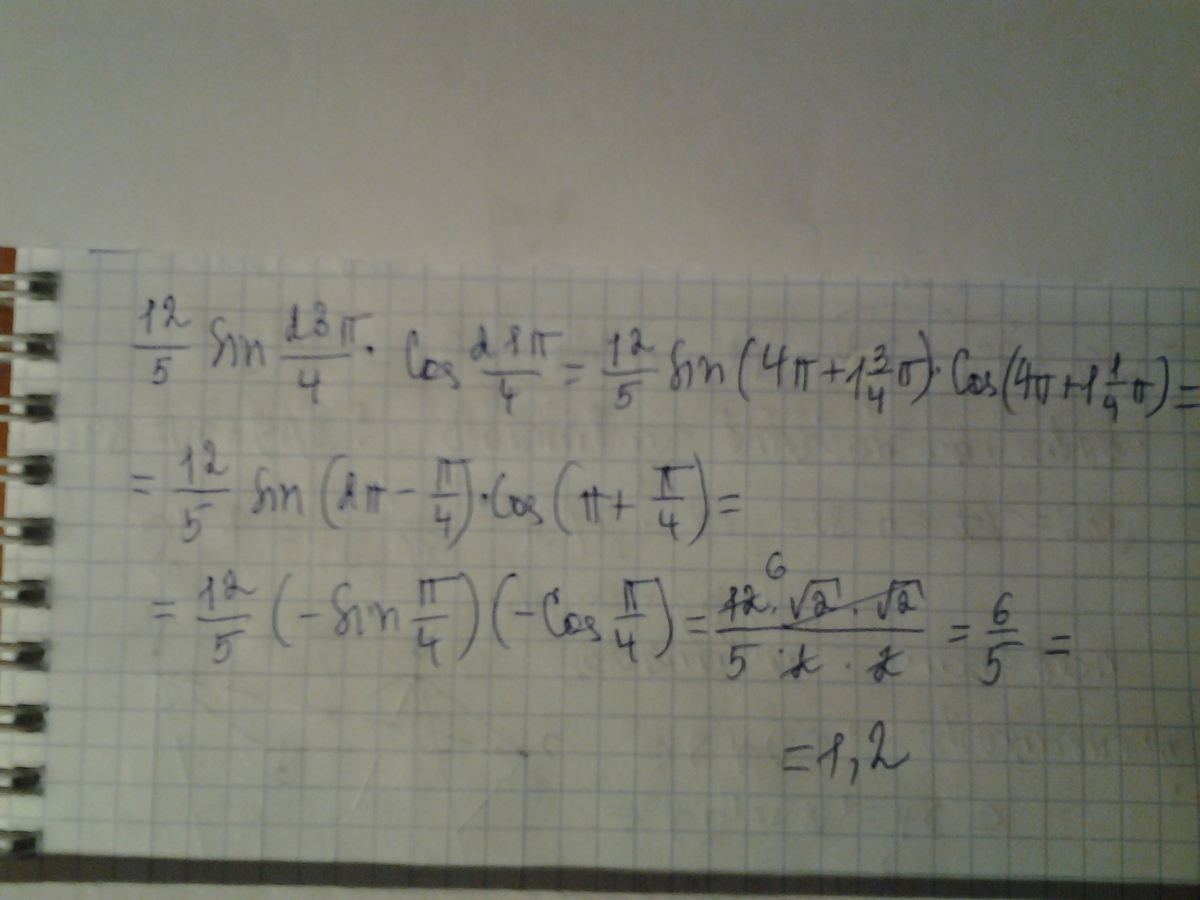 12/5 Sin 23π/4 · Cos 21π/4 = 12/5 Sin (4π+1 3/4 π) · Cos(4π+1 1/4 π) =
= 12/5 Sin (2π − π/4) · Cos (π + π/4) =
= 12/5 (−Sin π/4) (−Cos π/4) = 12 6 · √2 · √2 / 5 · 2 · 2 = 6/5 =
= 1,2